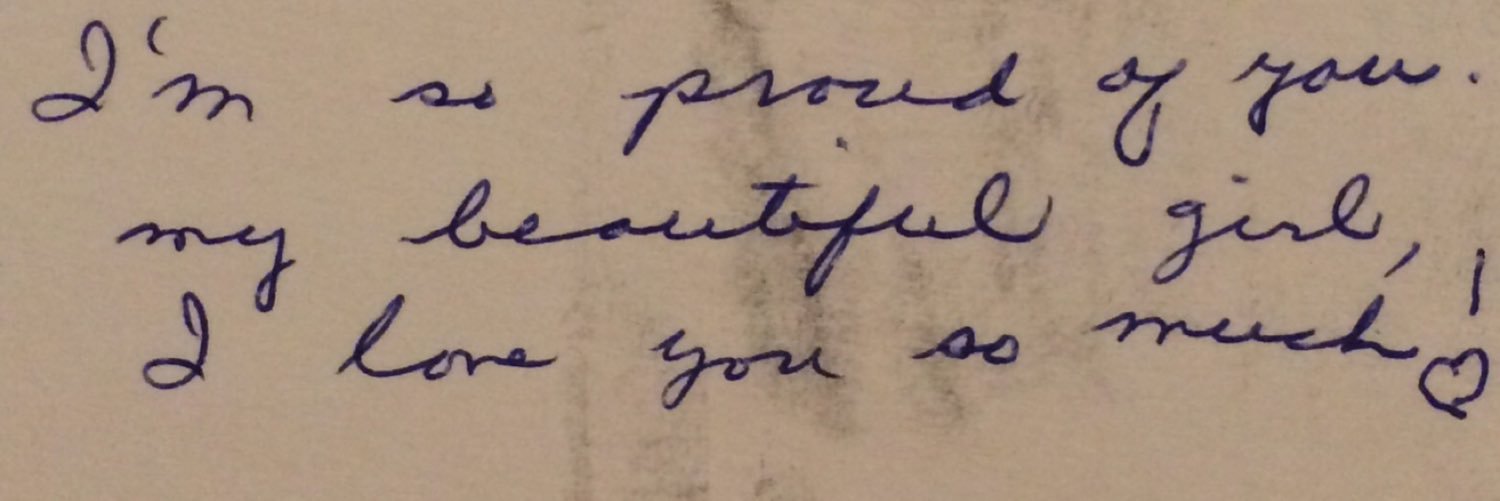 I'm so proud of you.
my beautiful girl,
I love you so much! ♡